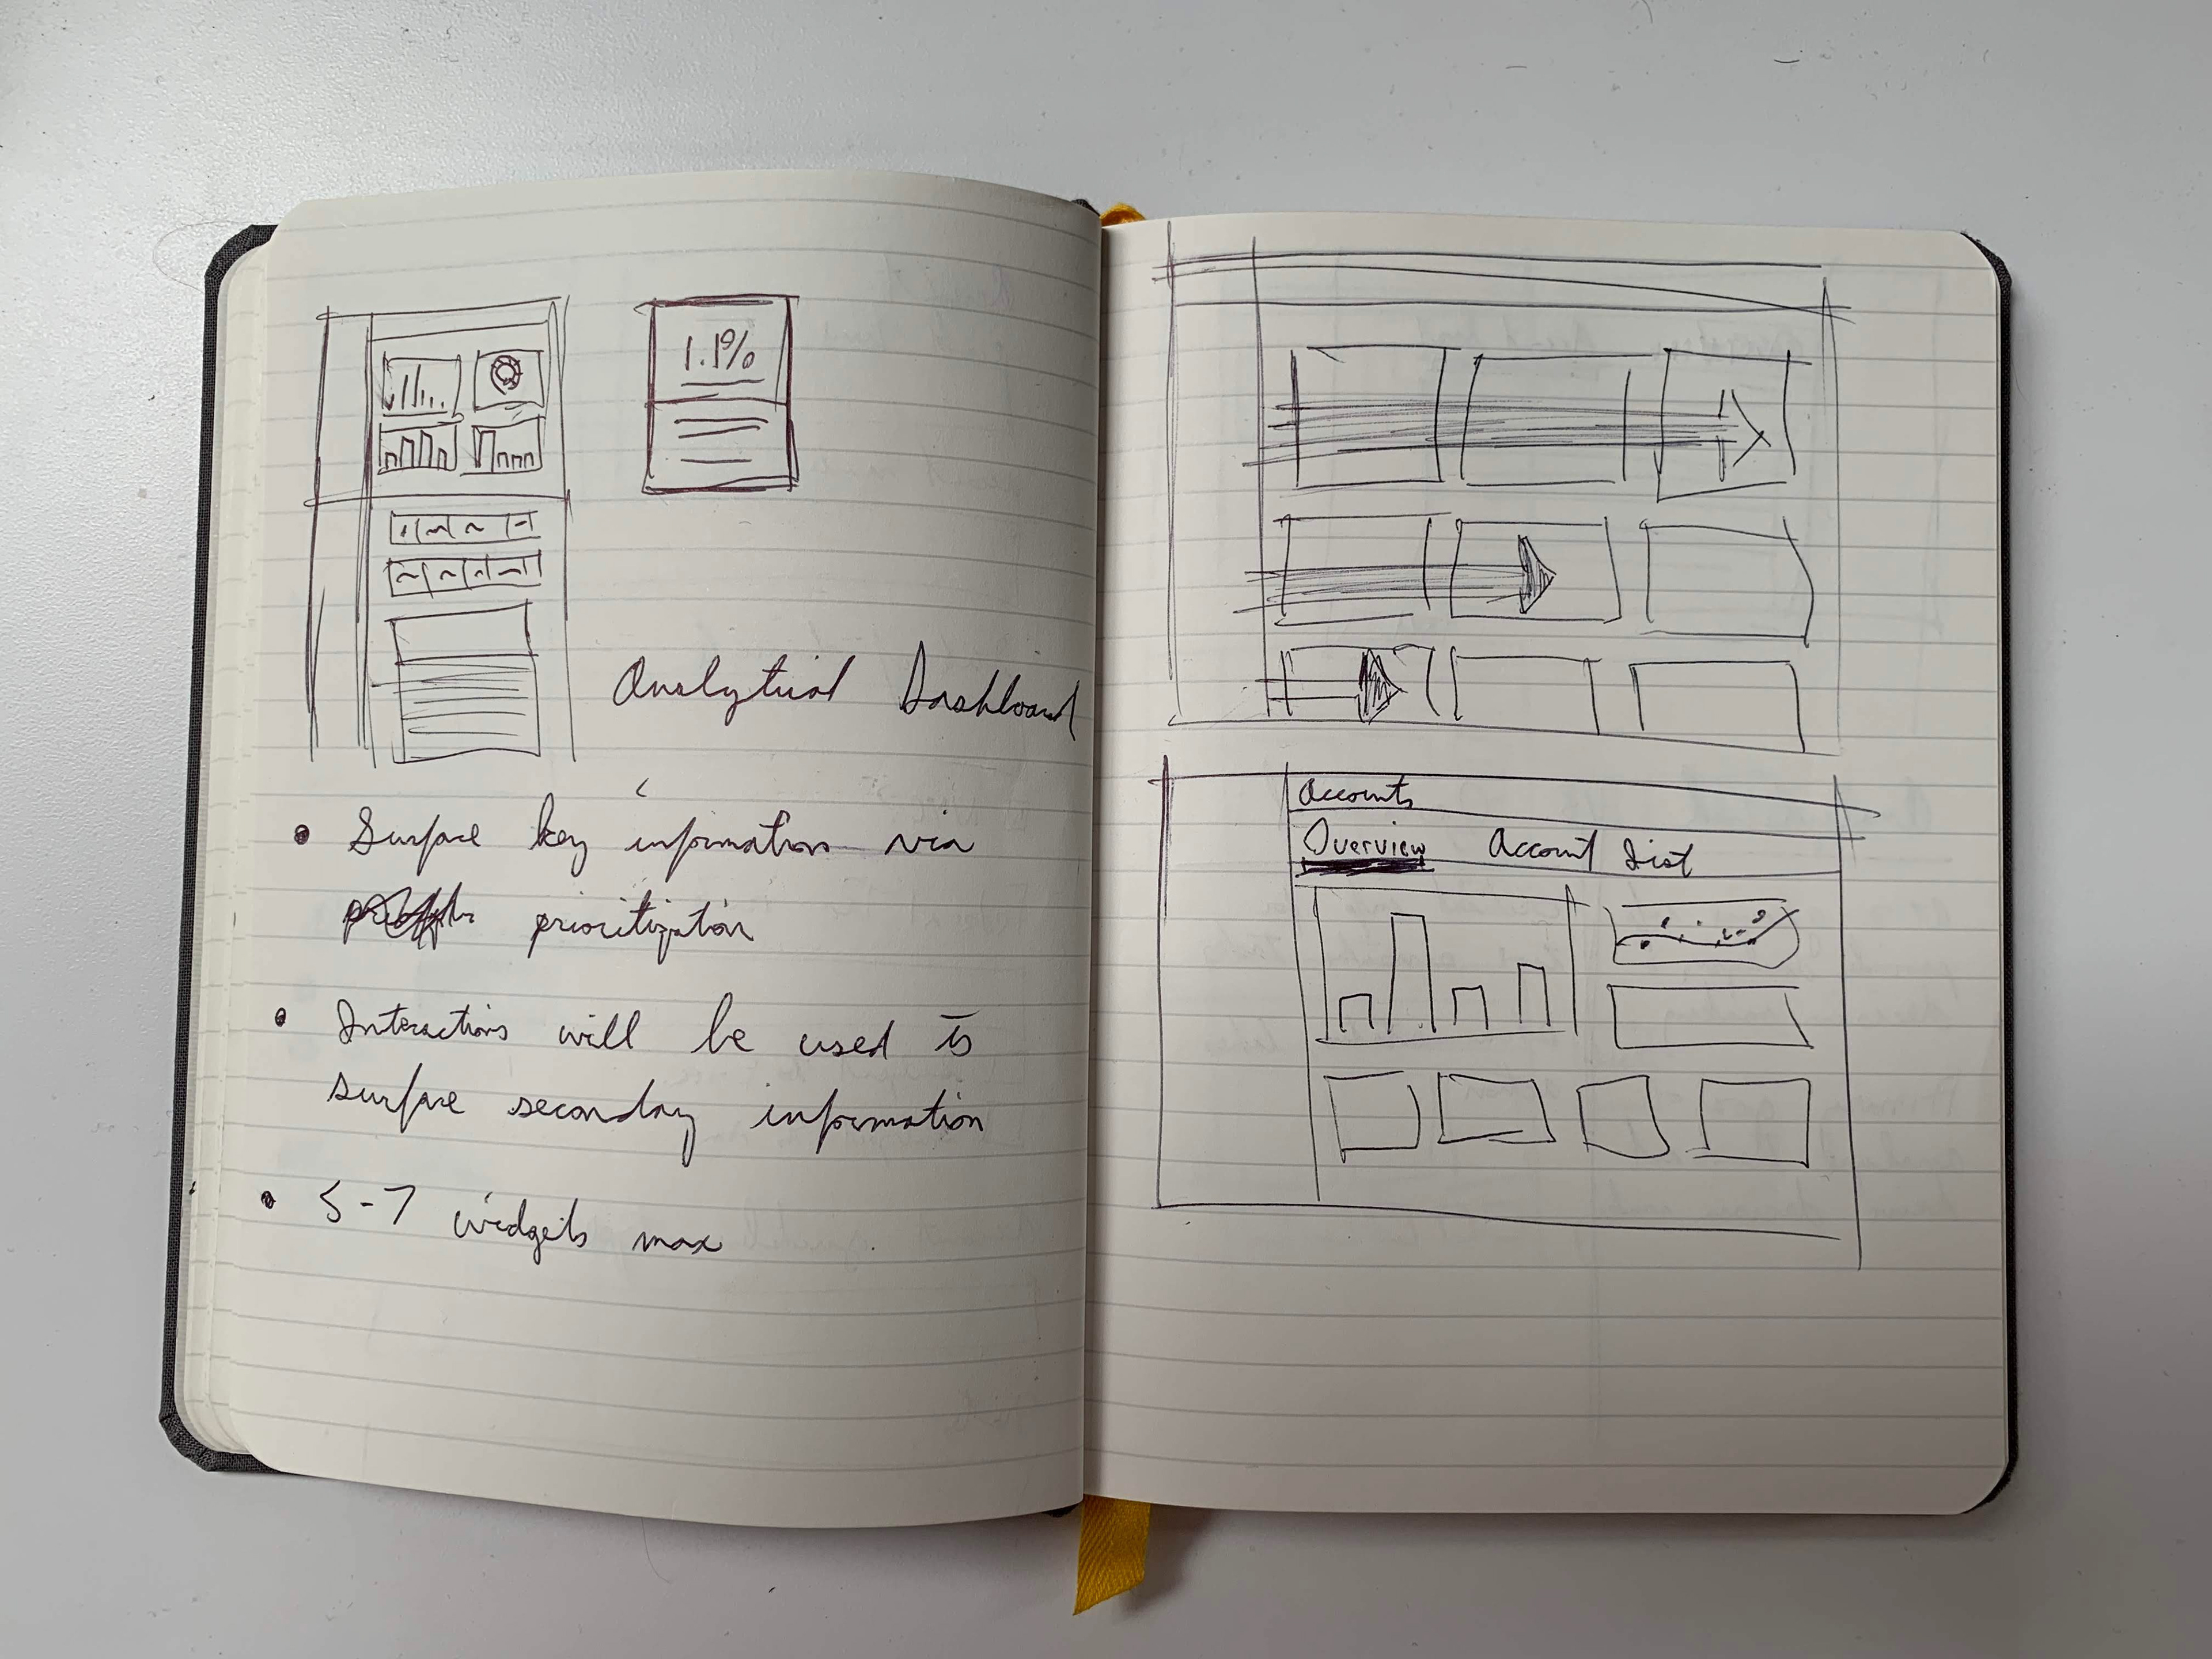 1.1%
Analytical Dashboard
Surface key information via
prioritization
Interactions will be used to
surface secondary information
5-7 widgets max
Accounts
Overview Account List